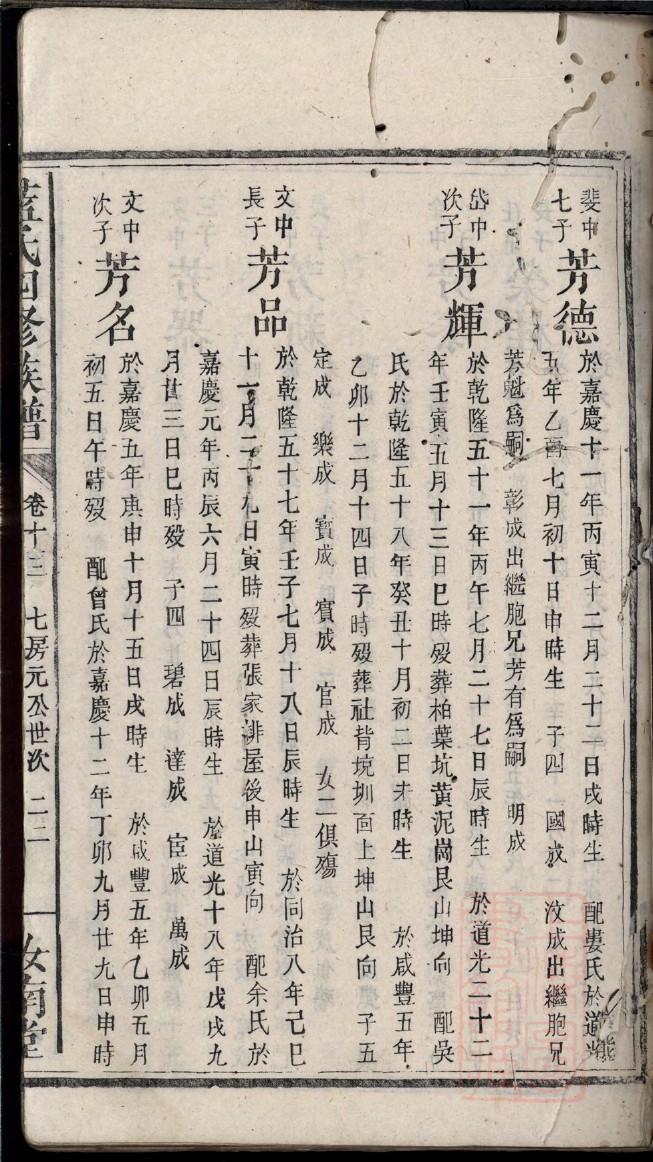 斐中七子 芳德 於嘉慶十一年丙寅十二月二十二日戌時生 配婁氏於道光
五年乙酉七月初十日申時生 子四 國成 汶成出繼胞兄
芳魁爲嗣 彰成出繼胞兄芳有爲嗣 明成
岱中次子 芳輝 於乾隆五十一年丙午七月二十七日辰時生 於道光二十二
年壬寅五月十三日巳時歿葬柏葉坑黃泥崗艮山坤向 配吳
氏於乾隆五十八年癸丑十月初二日未時生 於咸豐五年
乙卯十二月十四日子時歿葬社背境圳面上坤山艮向 子五
定成 樂成 寶成 賓成 官成 女二俱殤
文中長子 芳品 於乾隆五十七年壬子七月十八日辰時生 於同治八年己巳
十一月二十九日寅時歿葬張家排屋後申山寅向 配余氏於
嘉慶元年丙辰六月二十四日辰時生 於道光十八年戊戌九
月廿三日巳時歿 子四 碧成 達成 宦成 萬成
文中次子 芳名 於嘉慶五年庚申十月十五日戌時生 於咸豐五年乙卯五月
初五日午時歿 配曾氏於嘉慶十二年丁卯九月廿九日申時
藍氏四修族譜 卷十三 七房元公世次 二二 汝南堂